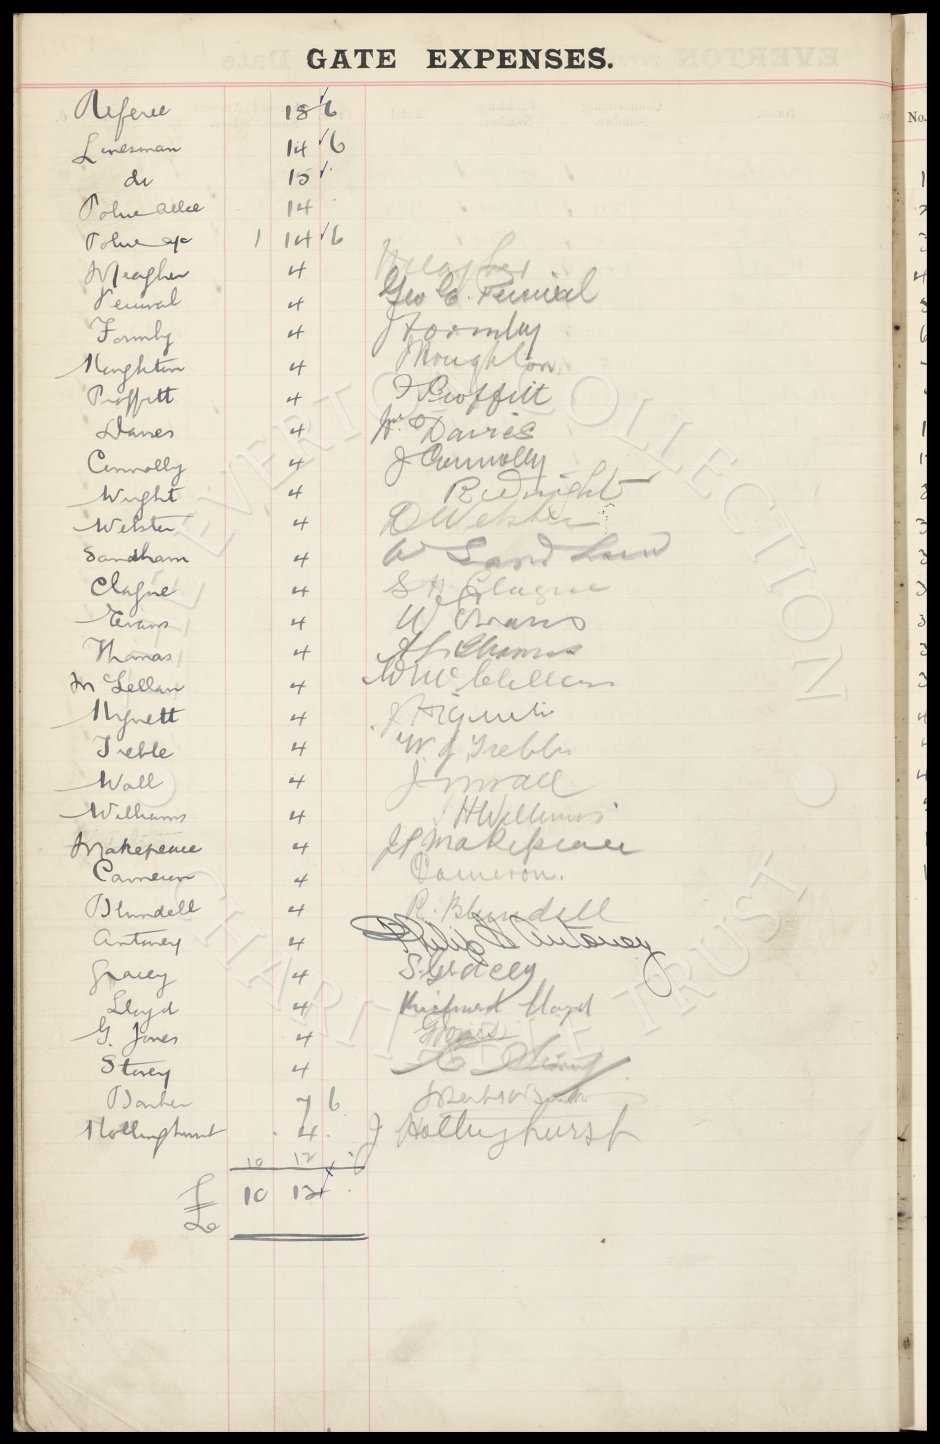 GATE EXPENSES.
Referee 18 6
Linesman 14 6
do 15
Police allee 14
Police ex 1 14 6
Meagher 4 Meagher
Percival 4 Geo C. Percival
Formby 4 J Formby
Houghton 4 Houghton
Proffitt 4 J Proffitt
Davies 4 Wm Davies
Connolly 4 J Connolly
Wright 4 R Wright
Webster 4 D Webster
Sandham 4 W Sandham
Clague 4 S H Clague
Evans 4 W Evans
Thomas 4 Thomas
McLellan 4 Wm McClellan
Hignett 4 J Hignett
Treble 4 W. J. Treble
Wall 4 J Wall
Williams 4 H Williams
Makepeace 4 J P Makepeace
Cameron 4 Cameron.
Blundell 4 R. Blundell
Antoney 4 Philip H Antoney
Gracey 4 S. Gracey
Lloyd 4 Richard Lloyd
G. Jones 4 G Jones
Storey 4
Barker 7 6
Hollinghurst 4 J Hollinghurst
10 12
£ 10 12
No.
THE EVERTON COLLECTION • CHARITABLE TRUST •